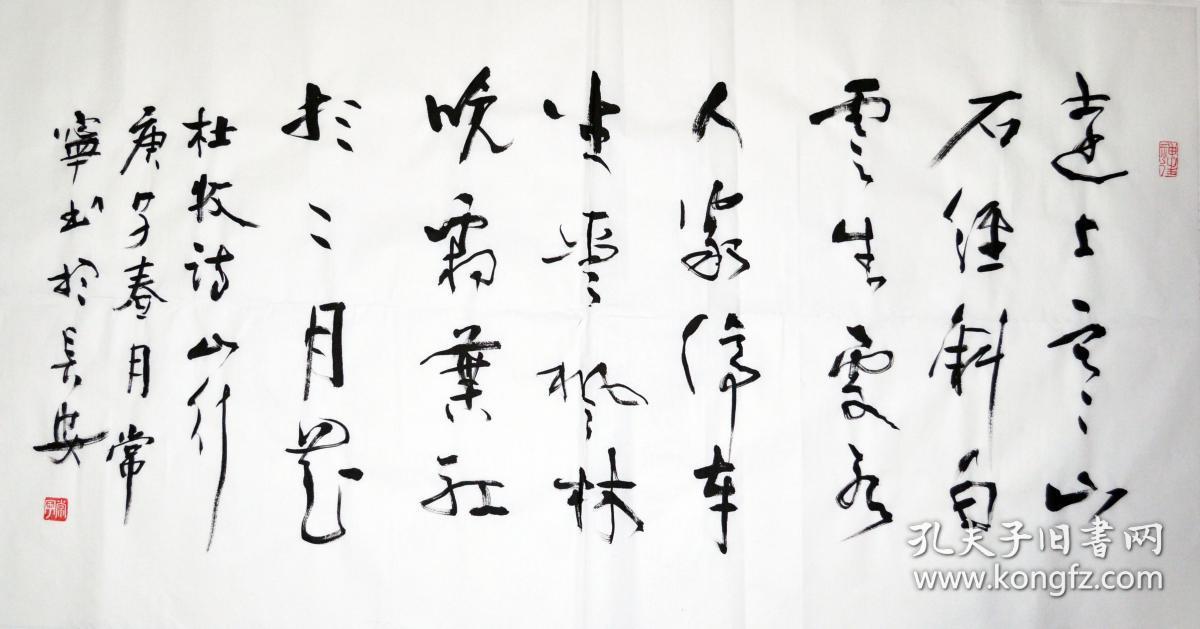 遠上寒山
石徑斜白
雲生處有
人家停車
坐愛楓林
晚霜葉紅
於二月花
杜牧詩山行
庚子春月常
寧书於長安
孔夫子旧书网
www.kongfz.com